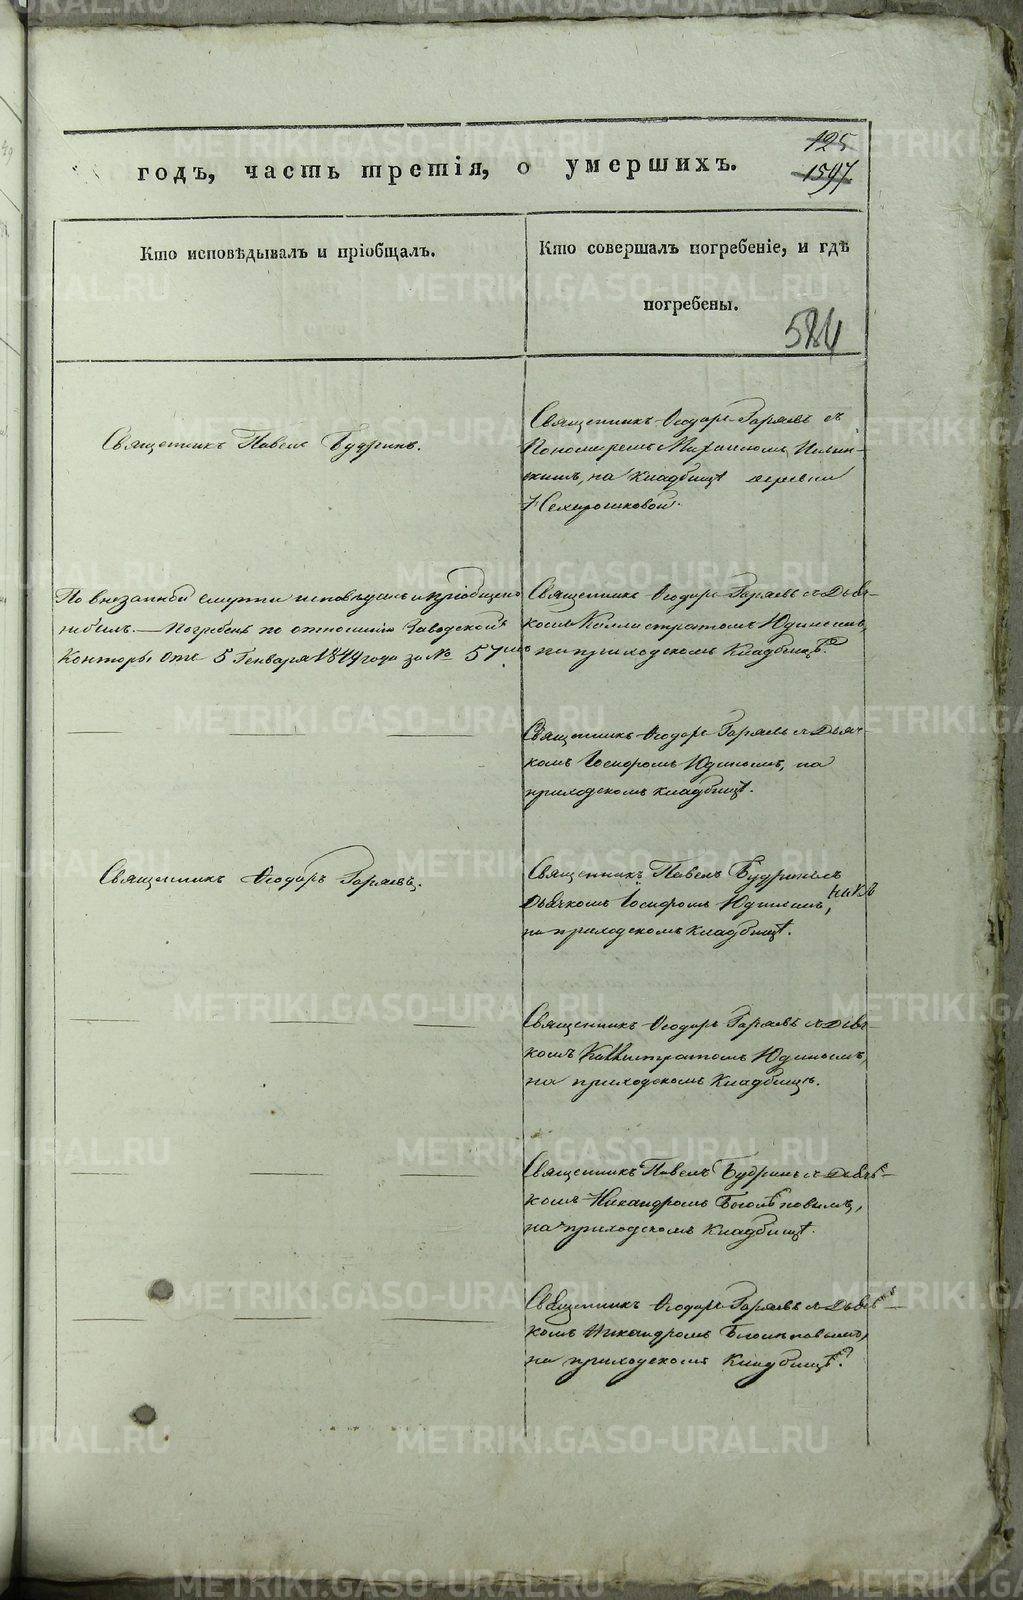 125
годъ, часть третія, о умершихъ.
1597
Кто исповѣдывалъ и пріобщалъ.
Кто совершалъ погребеніе, и гдѣ
погребены.
584
Священникъ Павелъ Будринъ.
Священникъ Ѳеодоръ Горяевъ съ
Пономаремъ Михаиломъ Ильин-
скимъ, на кладбищѣ деревни
По внезапной смерти исповѣданъ и пріобщенъ
небылъ. — Погребенъ по отношенію Заводской
Конторы отъ 5 Генваря 1844 года за № 57мъ
Священникъ Ѳеодоръ Горяевъ съ Дьяч-
комъ Каллистратомъ Юдинымъ,
на приходскомъ кладбищѣ
Священникъ Ѳеодоръ Горяевъ съ Дьяч-
комъ Іосифомъ Юдинымъ, на
приходскомъ кладбищѣ.
Священникъ Ѳеодоръ Горяевъ.
Священникъ Павелъ Будринъ съ
Дьячкомъ Іосифомъ Юдинымъ,
на приходскомъ кладбищѣ.
Священникъ Ѳеодоръ Горяевъ съ Дьяч-
комъ Каллистратомъ Юдинымъ,
на приходскомъ кладбищѣ.
Священникъ Павелъ Будринъ съ Дьяч-
комъ Никандромъ Боголѣповымъ,
на приходскомъ кладбищѣ.
Священникъ Ѳеодоръ Горяевъ съ Дьяч-
комъ Никандромъ Боголѣповымъ,
на приходскомъ кладбищѣ.
METRIKI.GASO-URAL.RU